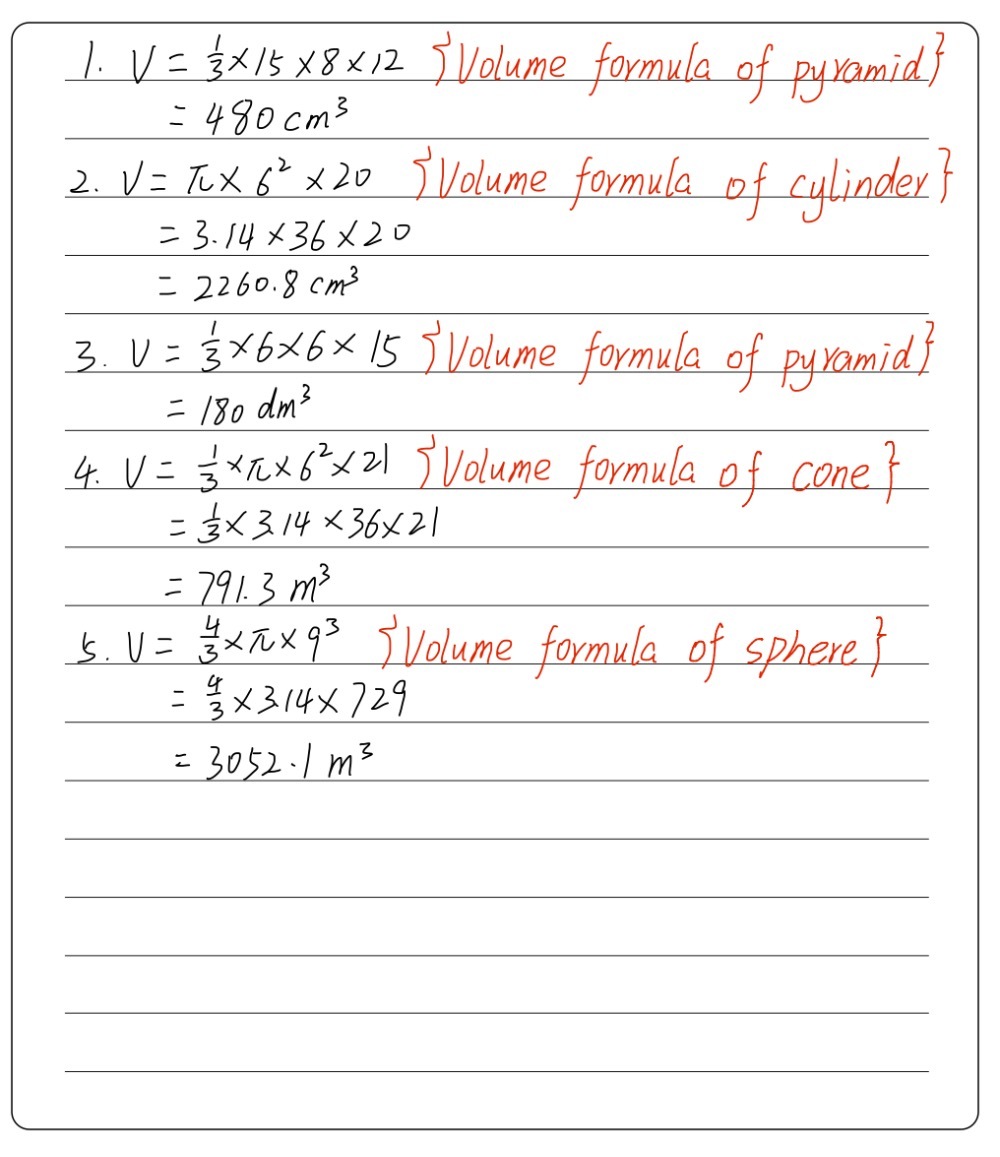 1. V = 1/3 × 15 × 8 × 12 {Volume formula of pyramid}
= 480 cm³
2. V = π × 6² × 20 {Volume formula of cylinder}
= 3.14 × 36 × 20
= 2260.8 cm³
3. V = 1/3 × 6 × 6 × 15 {Volume formula of pyramid}
= 180 dm³
4. V = 1/3 × π × 6² × 21 {Volume formula of cone}
= 1/3 × 3.14 × 36 × 21
= 791.3 m³
5. V = 4/3 × π × 9³ {Volume formula of sphere}
= 4/3 × 3.14 × 729
= 3052.1 m³